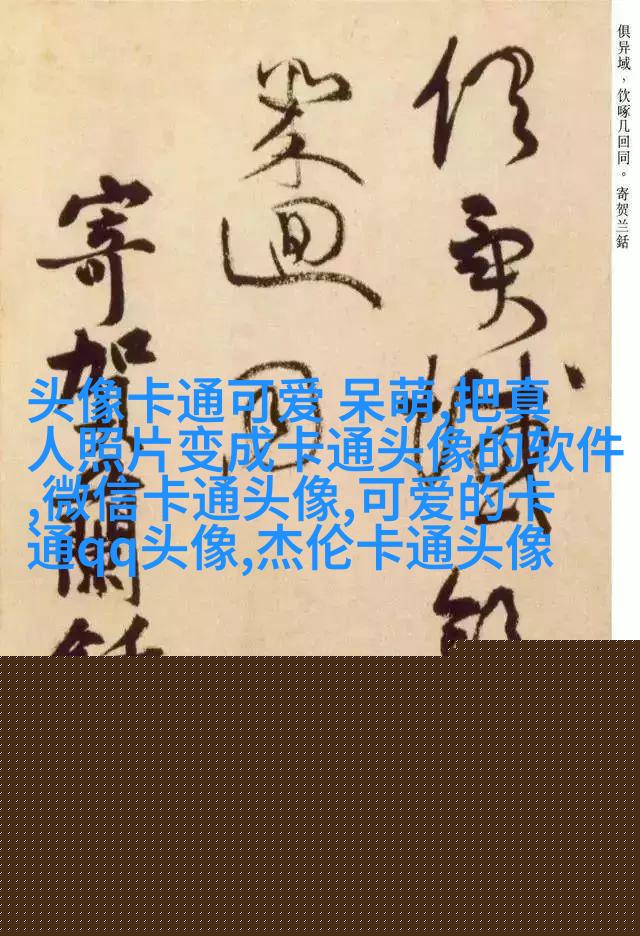 俱异域，饮啄几回同。寄贺兰銛
俱異域飲
迴同
寄賀蘭銛
头像卡通可爱 呆萌,把真
人照片变成卡通头像的软件
,微信卡通头像,可爱的卡
通qq头像,杰伦卡通头像